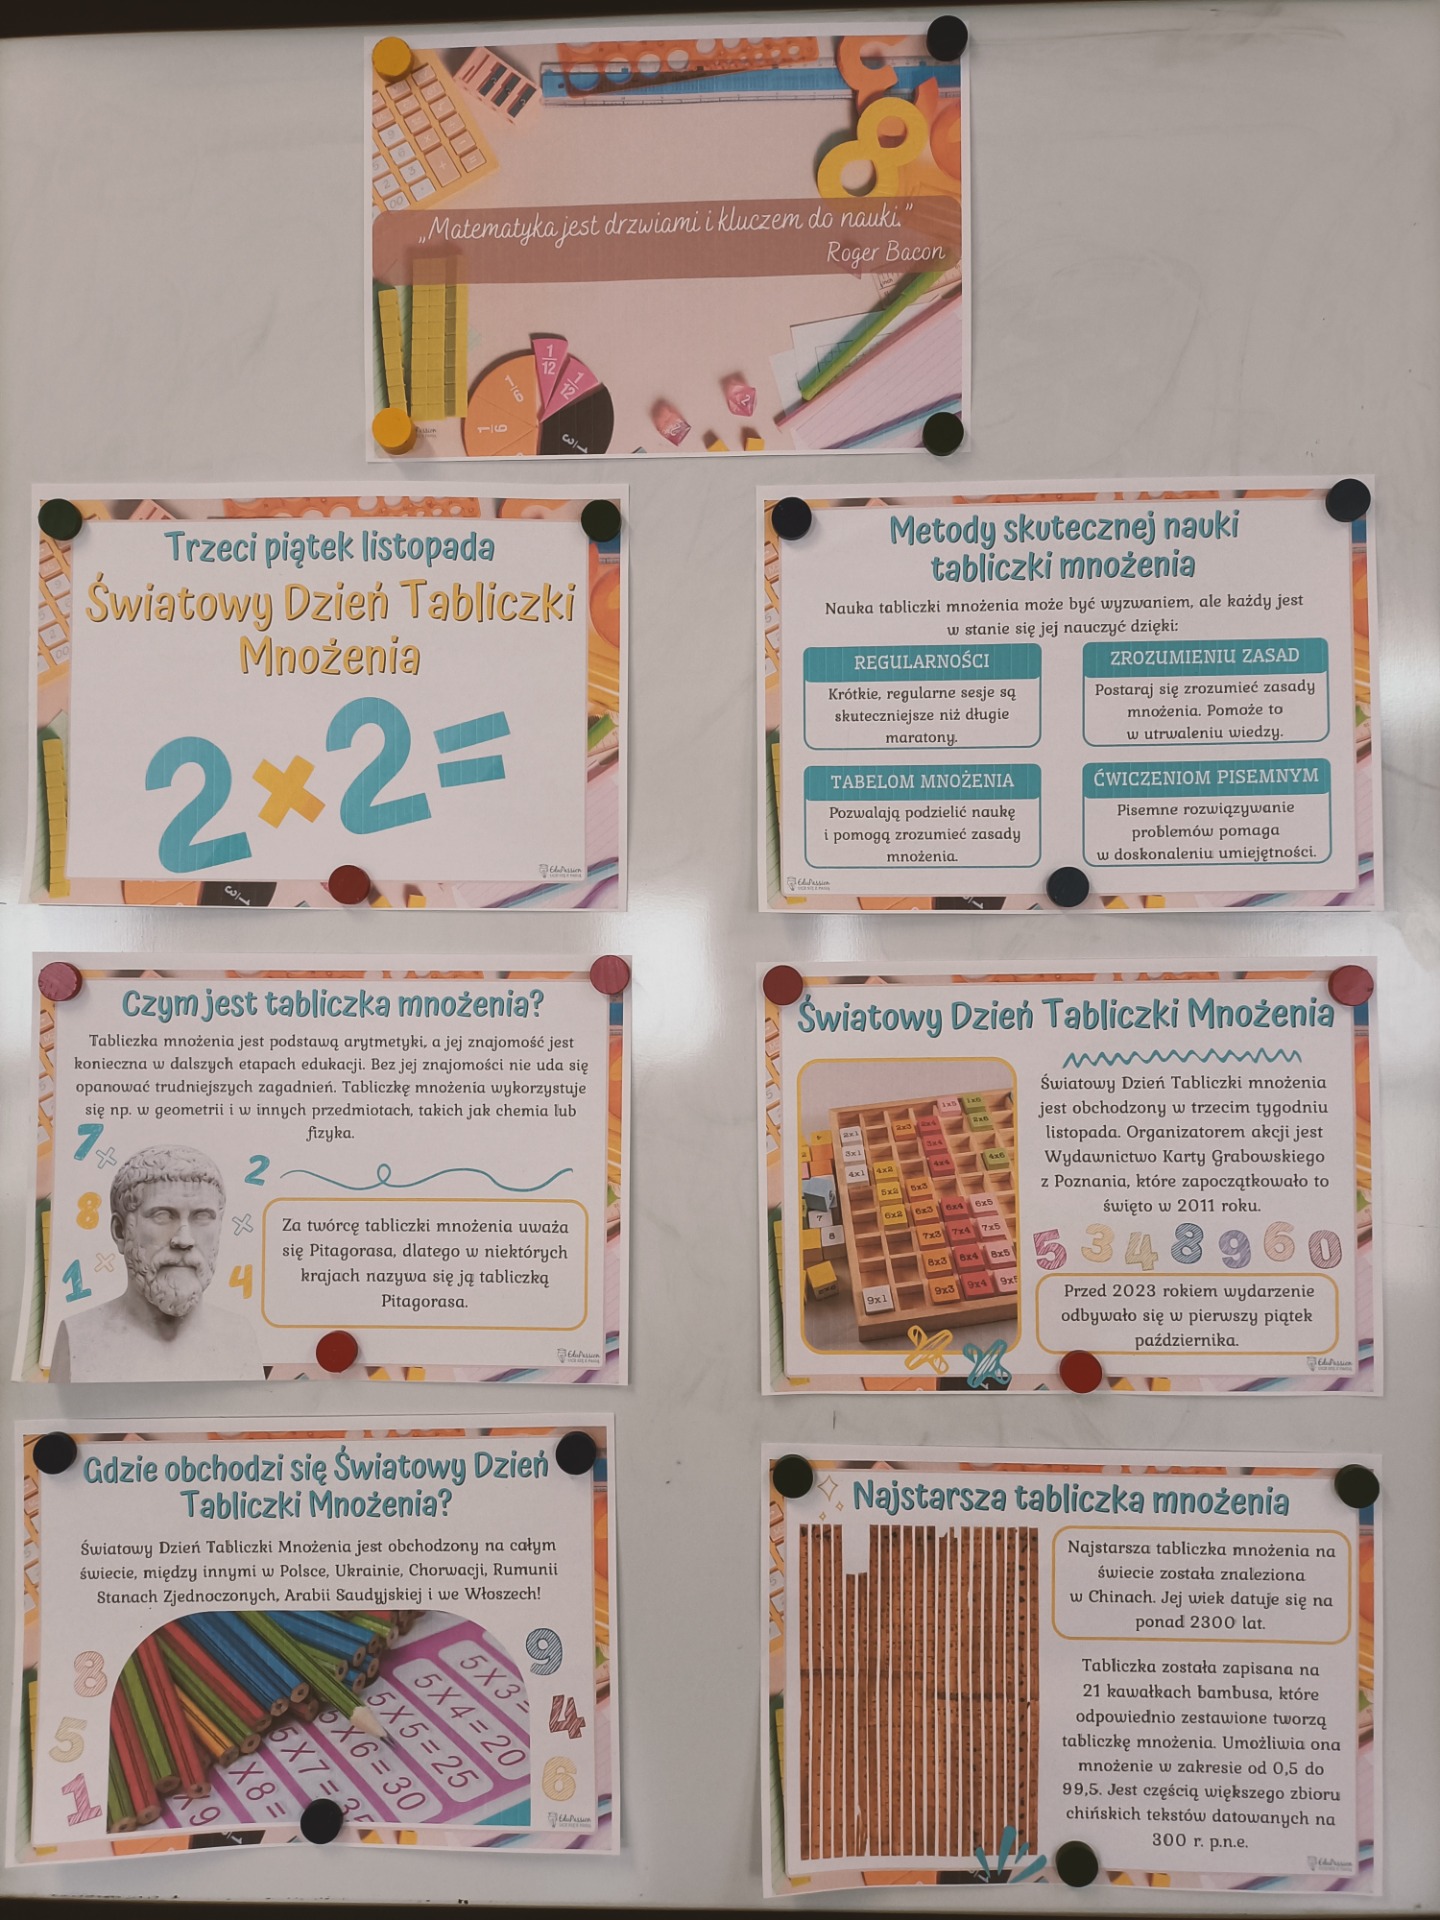 „Matematyka jest drzwiami i kluczem do nauki.”
Roger Bacon
Trzeci piątek listopada
Światowy Dzień Tabliczki
Mnożenia
2×2=
EduPassion
Metody skutecznej nauki
tabliczki mnożenia
Nauka tabliczki mnożenia może być wyzwaniem, ale każdy jest
w stanie się jej nauczyć dzięki:
REGULARNOŚCI
Krótkie, regularne sesje są
skuteczniejsze niż długie
maratony.
ZROZUMIENIU ZASAD
Postaraj się zrozumieć zasady
mnożenia. Pomoże to
w utrwaleniu wiedzy.
TABELOM MNOŻENIA
Pozwalają podzielić naukę
i pomogą zrozumieć zasady
mnożenia.
ĆWICZENIOM PISEMNYM
Pisemne rozwiązywanie
problemów pomaga
w doskonaleniu umiejętności.
EduPassion
Czym jest tabliczka mnożenia?
Tabliczka mnożenia jest podstawą arytmetyki, a jej znajomość jest
konieczna w dalszych etapach edukacji. Bez jej znajomości nie uda się
opanować trudniejszych zagadnień. Tabliczkę mnożenia wykorzystuje
się np. w geometrii i w innych przedmiotach, takich jak chemia lub
fizyka.
7 × 2
8 ×
1 × 4
Za twórcę tabliczki mnożenia uważa
się Pitagorasa, dlatego w niektórych
krajach nazywa się ją tabliczką
Pitagorasa.
EduPassion
Światowy Dzień Tabliczki Mnożenia
Światowy Dzień Tabliczki mnożenia
jest obchodzony w trzecim tygodniu
listopada. Organizatorem akcji jest
Wydawnictwo Karty Grabowskiego
z Poznania, które zapoczątkowało to
święto w 2011 roku.
5 3 4 8 9 6 0
Przed 2023 rokiem wydarzenie
odbywało się w pierwszy piątek
października.
EduPassion
Gdzie obchodzi się Światowy Dzień
Tabliczki Mnożenia?
Światowy Dzień Tabliczki Mnożenia jest obchodzony na całym
świecie, między innymi w Polsce, Ukrainie, Chorwacji, Rumunii
Stanach Zjednoczonych, Arabii Saudyjskiej i we Włoszech!
8 9
5 4
1 6
5X3=
5X4=20
5X5=25
5X6=30
5X7=35
X8=
X9
EduPassion
Najstarsza tabliczka mnożenia
Najstarsza tabliczka mnożenia na
świecie została znaleziona
w Chinach. Jej wiek datuje się na
ponad 2300 lat.
Tabliczka została zapisana na
21 kawałkach bambusa, które
odpowiednio zestawione tworzą
tabliczkę mnożenia. Umożliwia ona
mnożenie w zakresie od 0,5 do
99,5. Jest częścią większego zbioru
chińskich tekstów datowanych na
300 r. p.n.e.
EduPassion